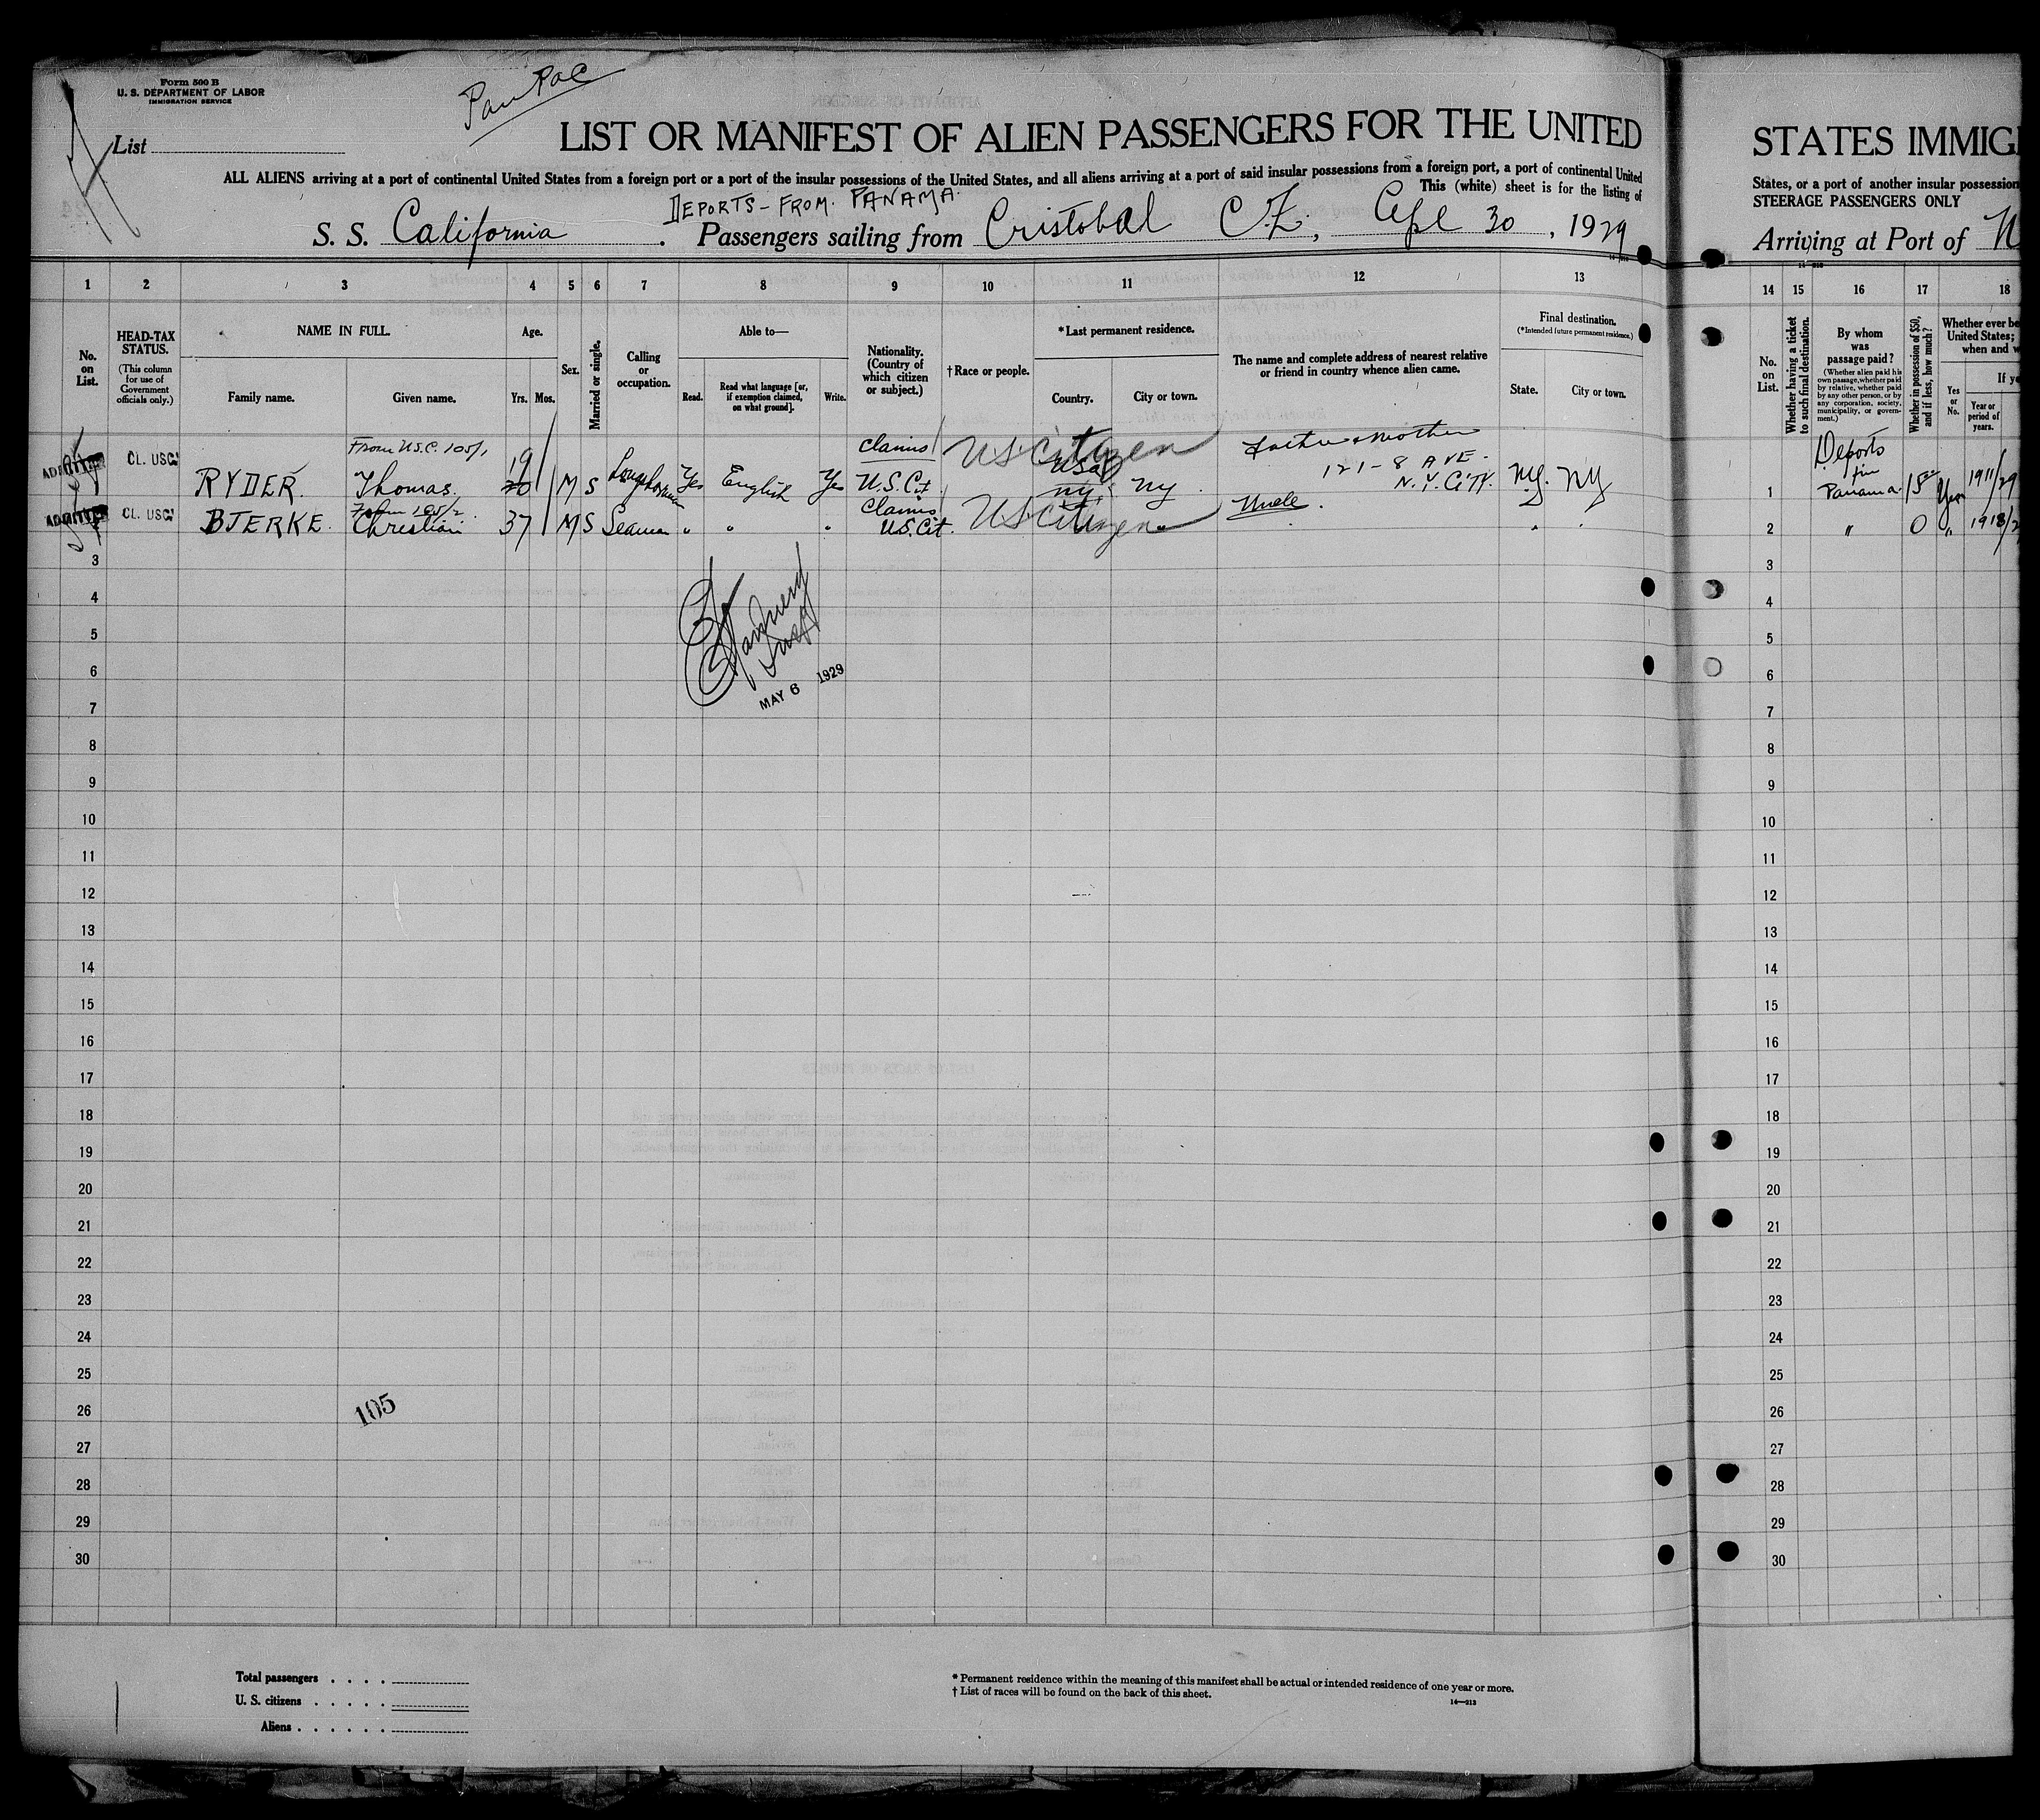 Form 500 B
U. S. DEPARTMENT OF LABOR
IMMIGRATION SERVICE
Pan Pac
List
LIST OR MANIFEST OF ALIEN PASSENGERS FOR THE UNITED
ALL ALIENS arriving at a port of continental United States from a foreign port or a port of the insular possessions of the United States, and all aliens arriving at a port of said insular possessions from a foreign port, a port of continental United
This (white) sheet is for the listing of
DEPORTS - FROM. PANAMA.
S. S. California . Passengers sailing from Cristobal C.Z., Apl 30, 1929
1 2 3 4 5 6 7 8 9 10 11 12 13
No. on List.
HEAD-TAX STATUS.
(This column for use of Government officials only.)
NAME IN FULL.
Family name. Given name.
Age.
Yrs. Mos.
Sex.
Married or single.
Calling or occupation.
Able to—
Read. Read what language [or, if exemption claimed, on what ground]. Write.
Nationality. (Country of which citizen or subject.)
†Race or people.
*Last permanent residence.
Country. City or town.
The name and complete address of nearest relative or friend in country whence alien came.
Final destination.
(*Intended future permanent residence.)
State. City or town.
From U.S.C. 105/1
ADMITTED CL. USC RYDER. Thomas. 19 20 M S Longshoreman Yes English Yes Claims U.S. Cit US Citizen USA NY. NY Father & Mother
121-8 AVE.
N.Y. CITY. NY. NY
From 105/2
ADMITTED CL. USC BJERKE. Christian 37 M S Seaman " " " Claims U.S. Cit. US Citizen " Uncle. " "
3
4
5
6
7
8
9
10
11
12
13
14
15
16
17
18
19
20
21
22
23
24
25
26
27
28
29
30
Insp
MAY 6 1929
105
Total passengers
U. S. citizens
Aliens
* Permanent residence within the meaning of this manifest shall be actual or intended residence of one year or more.
† List of races will be found on the back of this sheet.
14—213
STATES IMMIG
States, or a port of another insular possession
STEERAGE PASSENGERS ONLY
Arriving at Port of N
14 15 16 17 18
No. on List.
Whether having a ticket to such final destination.
By whom was passage paid?
(Whether alien paid his own passage, whether paid by relative, whether paid by any other person, or by any corporation, society, municipality, or government.)
Whether in possession of $50, and if less, how much?
Whether ever be
United States;
when and w
Yes or No.
If ye
Year or period of years.
Deports
fm
1 Panama 15 Yes 1911/29
2 " 0 " 1918/2
3
4
5
6
7
8
9
10
11
12
13
14
15
16
17
18
19
20
21
22
23
24
25
26
27
28
29
30